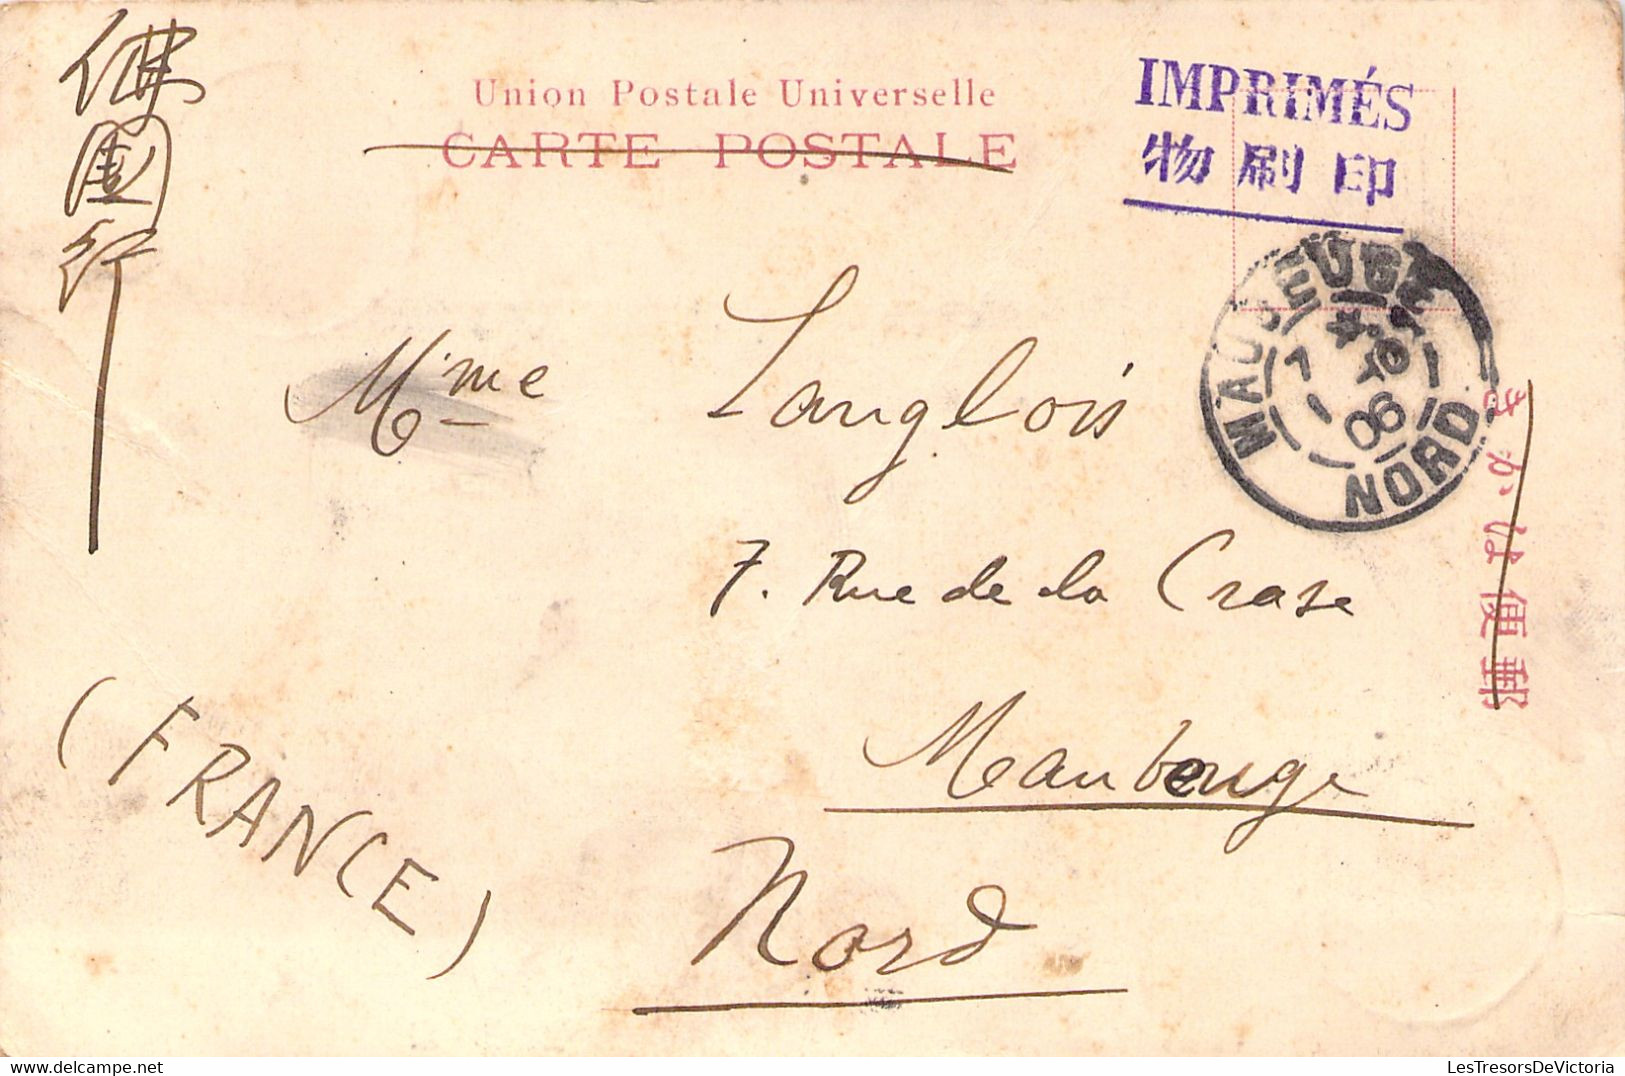 佛國行
Union Postale Universelle
CARTE POSTALE
IMPRIMÉS
物刷印
MAUBEUGE
7
06
NORD
きかは便郵
Mme Langlois
7. Rue de la Crase
Maubeuge
Nord
(FRANCE)
LesTresorsDeVictoria